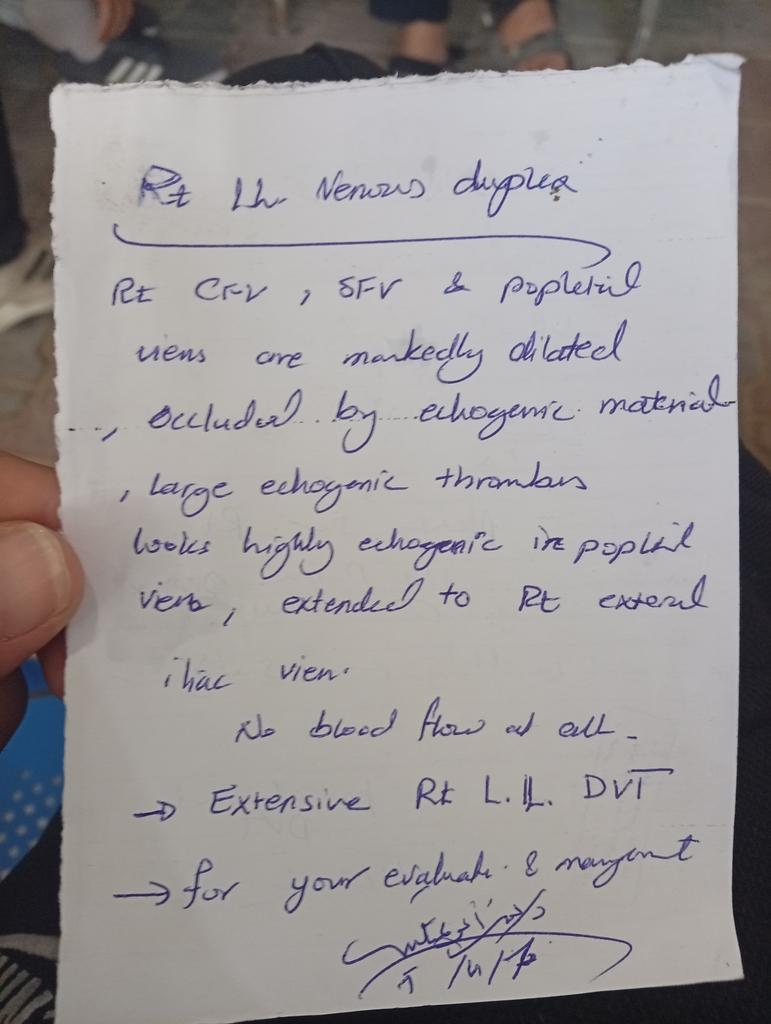 Rt LL Venous duplex
Rt CFV, SFV & popleteal
viens are markedly dilated
, occluded by echogenic material
, large echogenic thrombus
looks highly echogenic in
viens, extended to Rt
iliac vien.
No blood flow at all.
→ Extensive Rt L.L. DVT
→ for your evaluate &